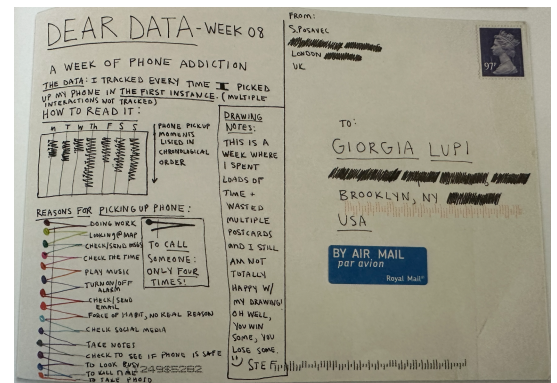 DEAR DATA - WEEK 08
A WEEK OF PHONE ADDICTION
THE DATA: I TRACKED EVERY TIME I PICKED
UP MY PHONE IN THE FIRST INSTANCE. (MULTIPLE
INTERACTIONS NOT TRACKED)
HOW TO READ IT:
M T W Th F S S
PHONE PICKUP
MOMENTS
LISTED IN
CHRONOLOGICAL
ORDER
REASONS FOR PICKING UP PHONE:
DOING WORK
LOOKING @ MAP
CHECK/SEND
CHECK THE TIME
PLAY MUSIC
TURN ON/OFF
ALARM
CHECK/SEND
EMAIL
FORCE OF HABIT, NO REAL REASON
CHECK SOCIAL MEDIA
TAKE NOTES
CHECK TO SEE IF PHONE IS SAFE
TO LOOK BUSY
TO KILL TIME
TO TAKE PHOTO
TO CALL
SOMEONE:
ONLY FOUR
TIMES!
DRAWING
NOTES:
THIS IS A
WEEK WHERE
I SPENT
LOADS OF
TIME +
WASTED
MULTIPLE
POSTCARDS
AND I STILL
AM NOT
TOTALLY
HAPPY W/
MY DRAWING!
OH WELL,
YOU WIN
SOME, YOU
LOSE SOME.
STEF
FROM:
S.POSAVEC
LONDON
UK
97P
TO:
GIORGIA LUPI
BROOKLYN, NY
USA
BY AIR MAIL
par avion
Royal Mail